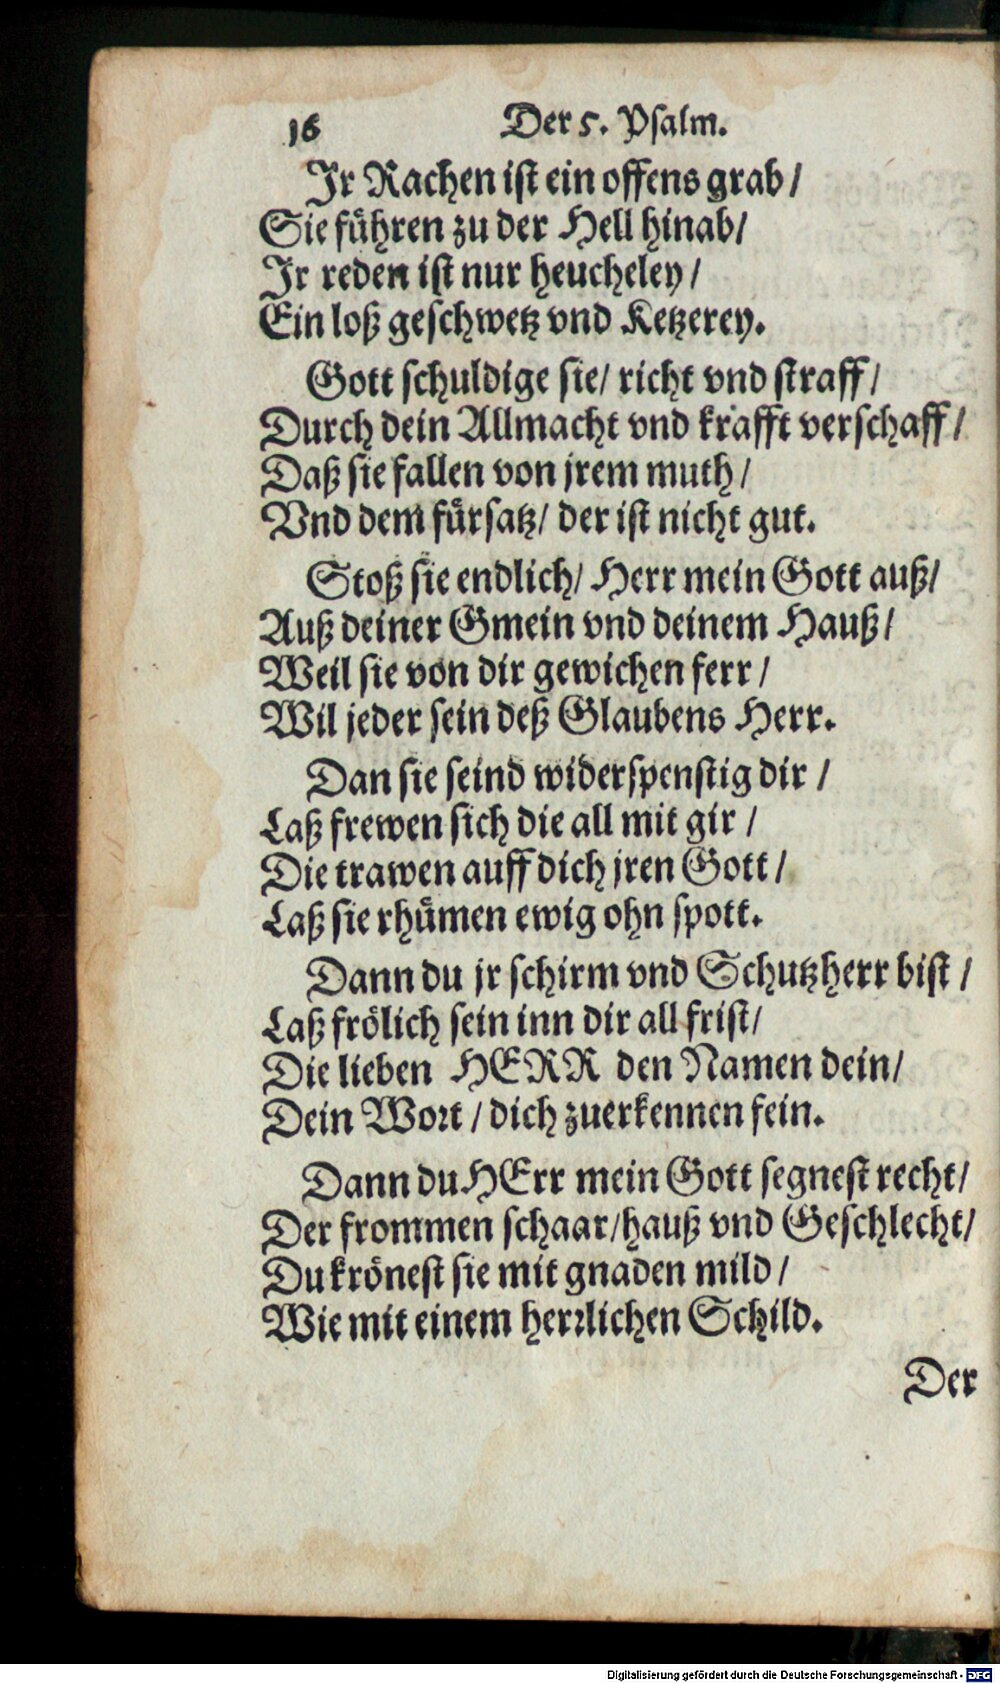 16 Der 5. Psalm.
Jr Rachen ist ein offens grab /
Sie führen zu der Hell hinab /
Jr reden ist nur heucheley /
Ein loß geschwetz vnd Ketzerey.
Gott schuldige sie / richt vnd straff /
Durch dein Allmacht vnd krafft verschaff /
Daß sie fallen von jrem muth /
Vnd dem fürsatz / der ist nicht gut.
Stoß sie endlich / Herr mein Gott auß /
Auß deiner Gmein vnd deinem Hauß /
Weil sie von dir gewichen ferr /
Wil jeder sein deß Glaubens Herr.
Dan sie seind widerspenstig dir /
Laß frewen sich die all mit gir /
Die trawen auff dich jren Gott /
Laß sie rhümen ewig ohn spott.
Dann du jr schirm vnd Schutzherr bist /
Laß frölich sein inn dir all frist /
Die lieben HERR den Namen dein /
Dein Wort / dich zuerkennen fein.
Dann du HErr mein Gott segnest recht /
Der frommen schaar / hauß vnd Geschlecht /
Du krönest sie mit gnaden mild /
Wie mit einem herrlichen Schild.
Der
Digitalisierung gefördert durch die Deutsche Forschungsgemeinschaft - DFG